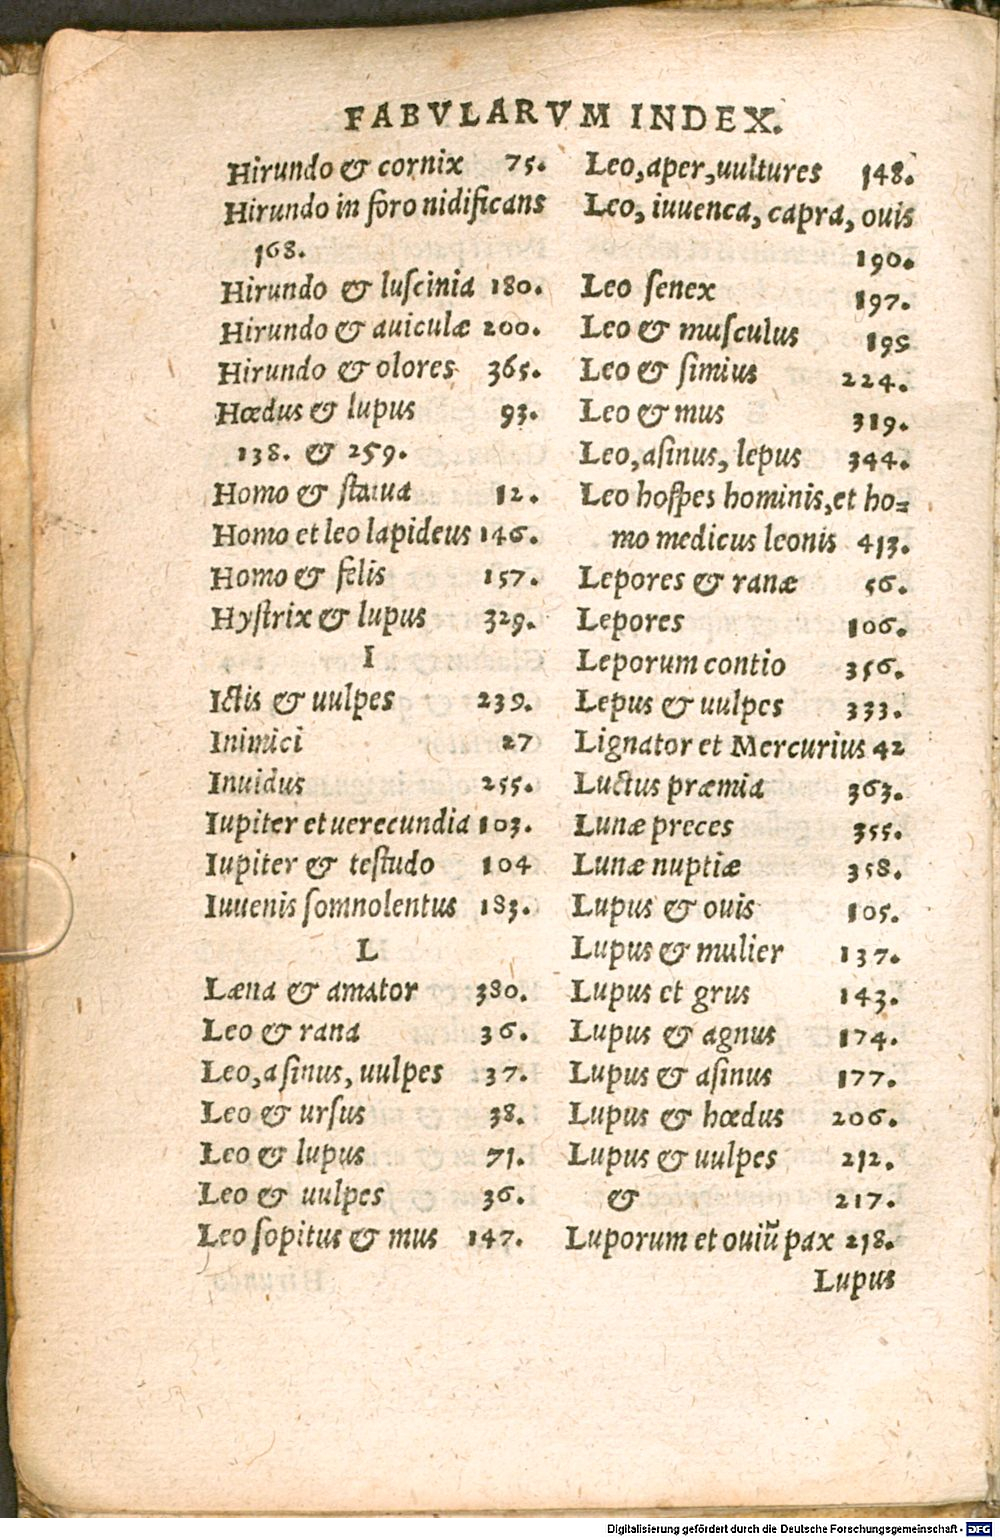 FABVLARVM INDEX.
Hirundo & cornix 75.
Hirundo in foro nidificans
168.
Hirundo & luſcinia 180.
Hirundo & auiculæ 200.
Hirundo & olores 365.
Hœdus & lupus 93.
138. & 259.
Homo & ſtatua 12.
Homo et leo lapideus 146.
Homo & felis 157.
Hyſtrix & lupus 329.
I
Ictis & uulpes 239.
Inimici 27
Inuidus 255.
Iupiter et uerecundia 103.
Iupiter & teſtudo 104
Iuuenis ſomnolentus 183.
L
Læna & amator 380.
Leo & rana 36.
Leo, aſinus, uulpes 37.
Leo & urſus 38.
Leo & lupus 71.
Leo & uulpes 36.
Leo ſopitus & mus 147.
Leo, aper, uultures 148.
Leo, iuuenca, capra, ouis
190.
Leo ſenex 197.
Leo & muſculus 199
Leo & ſimius 224.
Leo & mus 319.
Leo, aſinus, lepus 344.
Leo hoſpes hominis, et ho=
mo medicus leonis 413.
Lepores & ranæ 56.
Lepores 106.
Leporum contio 356.
Lepus & uulpes 333.
Lignator et Mercurius 42
Luctus præmia 363.
Lunæ preces 355.
Lunæ nuptiæ 358.
Lupus & ouis 105.
Lupus & mulier 137.
Lupus et grus 143.
Lupus & agnus 174.
Lupus & aſinus 177.
Lupus & hœdus 206.
Lupus & uulpes 212.
& 217.
Luporum et ouiũ pax 218.
Lupus
Digitalisierung gefördert durch die Deutsche Forschungsgemeinschaft - DFG